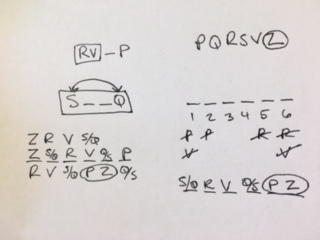 RV - P
S _ _ Q
Z R V S/Q
Z S/Q R V Q/S P
R V S/Q P Z Q/S
P Q R S V Z
_ _ _ _ _ _
1 2 3 4 5 6
P P R R
V V
S/Q R V Q/S P Z